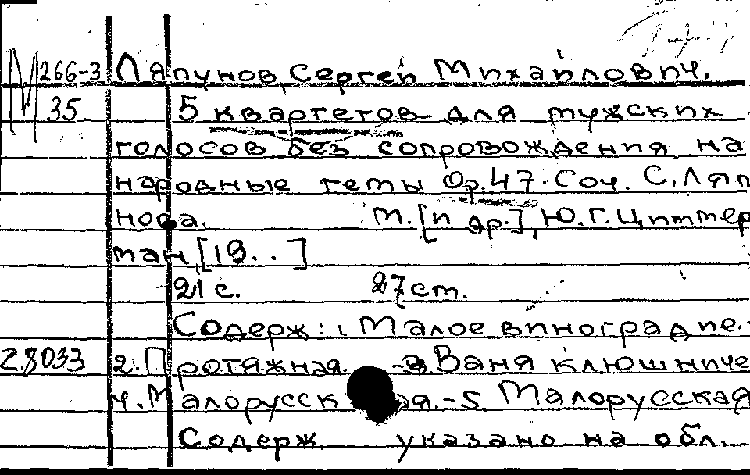 М 266-3 Ляпунов, Сергей Михайлович.
35 5 квартетов для мужских
голосов без сопровождения на
народные темы Op. 47. Соч. С. Ляп
нова. М. [и др.], Ю.Г. Циммер
ман [19..]
21 с. 27 ст.
Содерж: 1. Малое виноградие.-
28033 2. Протяжная. -3. Ваня ключниче
4. Малорусск ая.-5. Малорусская
Содерж. указано на обл.